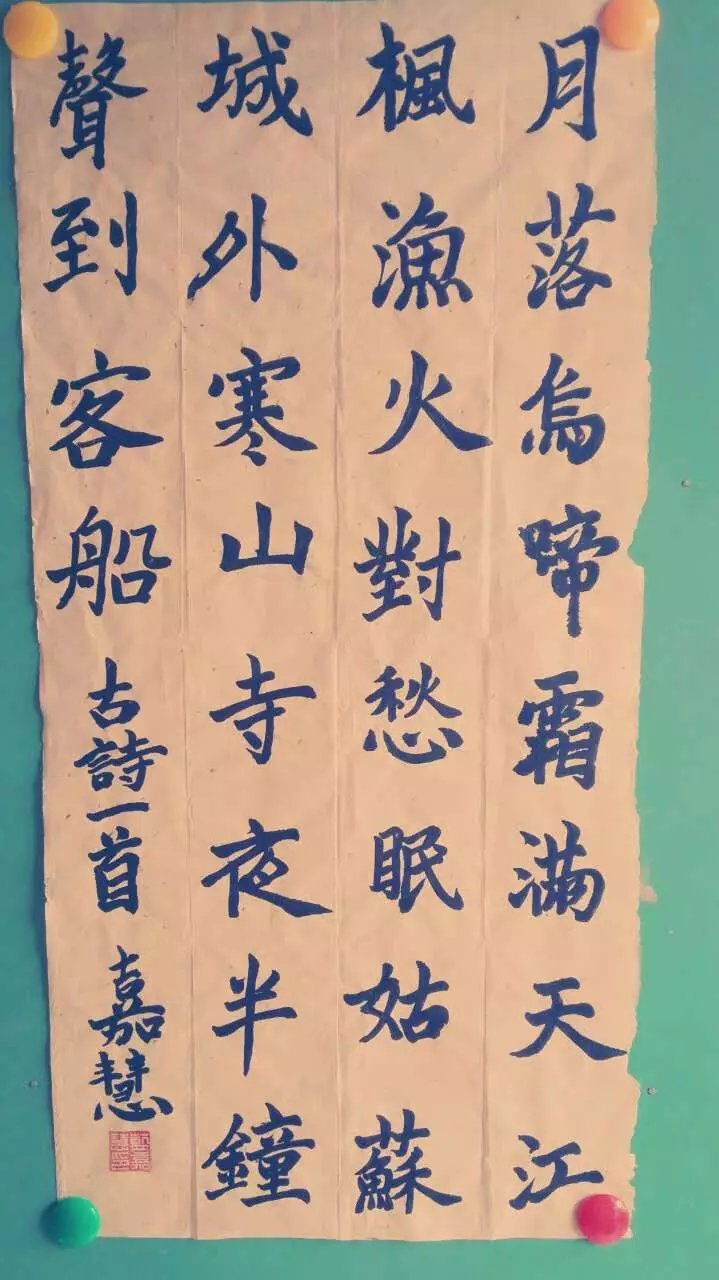 月落烏啼霜滿天江
楓漁火對愁眠姑蘇
城外寒山寺夜半鐘
聲到客船
古詩一首
嘉慧